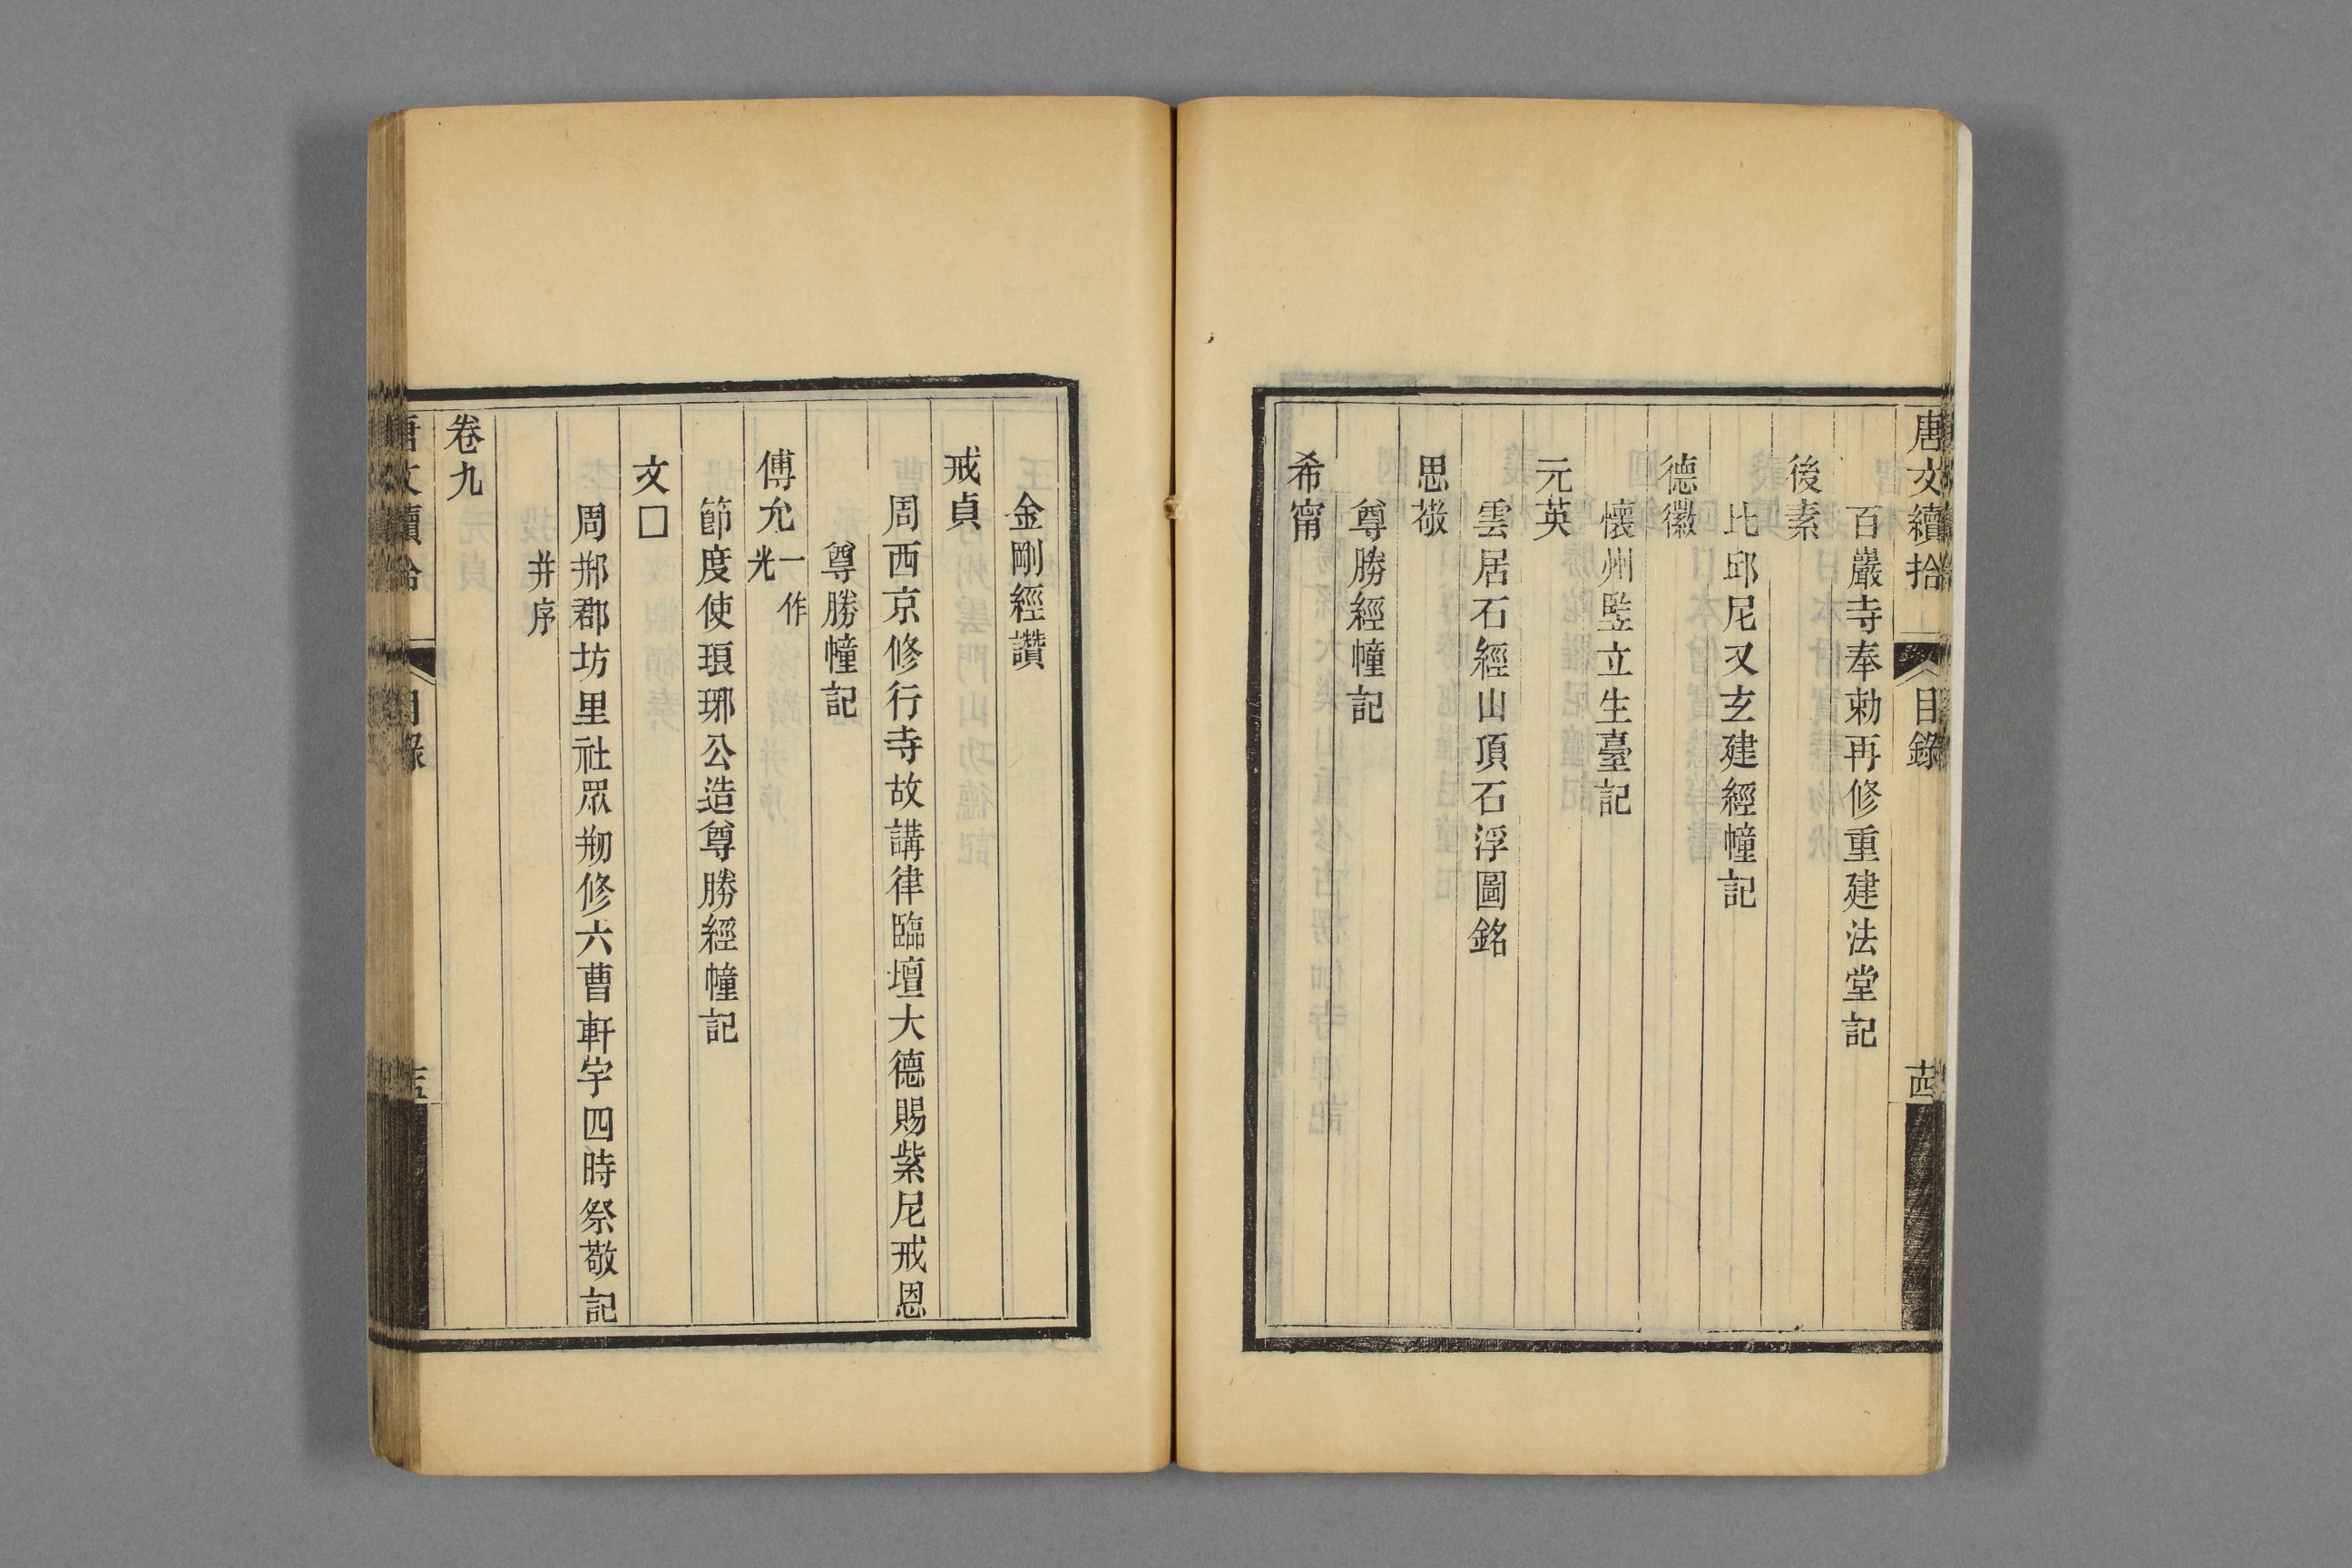 唐文續拾
目錄
百巖寺奉勅再修重建法堂記
後素
比邱尼又玄建經幢記
德徽
懷州監立生臺記
元英
雲居石經山頂石浮圖銘
思敬
尊勝經幢記
希甯
金剛經讚
戒貞
周西京修行寺故講律臨壇大德賜紫尼戒恩
尊勝幢記
傅允一作光
節度使琅琊公造尊勝經幢記
文□
周邢郡坊里社眾剏修六曹軒宇四時祭敬記
并序
卷九
唐文續拾
目錄